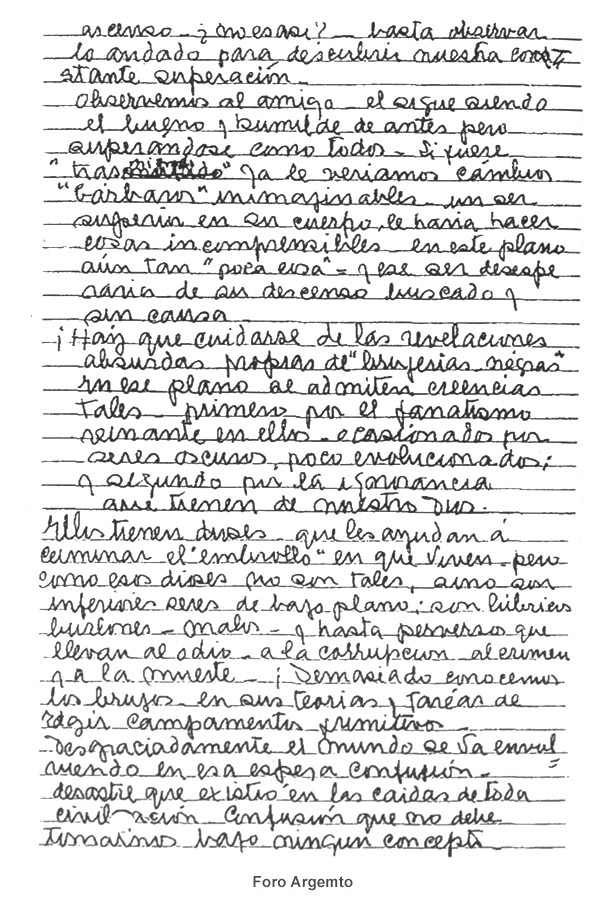 ascenso - ¿no es así? - basta observar
lo andado para descubrir nuestra con
stante superación -
observemos al amigo - el sigue siendo
el bueno y humilde de antes pero
superandose como todos - Si fuese
"trasmitido" ya le veriamos cambios
"bárbaros" inimaginables - un ser
superior en su cuerpo, le haria hacer
cosas incomprensibles - en este plano
aún tan "poca cosa" - y ese ser desespe
raria de su descenso buscado y
sin causa -
¡Hay que cuidarse de las revelaciones
absurdas propias de "brujerias negras"
en ese plano se admiten creencias
tales - primero por el fanatismo
reinante en ellos - ocasionados por
seres oscuros, poco evolucionados;
y segundo por la ignorancia
que tienen de nuestro Dios.
Ellos tienen dioses - que les ayudan á
caminar el "embrollo" en que viven - pero
como esos dioses no son tales, sino son
inferiores seres de bajo plano; son lúbricos
burlones - malos - y hasta perversos que
llevan al odio - a la corrupcion al crimen
y a la muerte - ¡Demasiado conocemos
los brujos - en sus teorias y tareas de
regir campamentos primitivos -
Desgraciadamente el mundo se va envol
viendo en esa espesa confusión -
desastre que existió en las caidas de toda
civilización Confusión que no debe
tomarnos bajo ningun concepto -
Foro Argemto